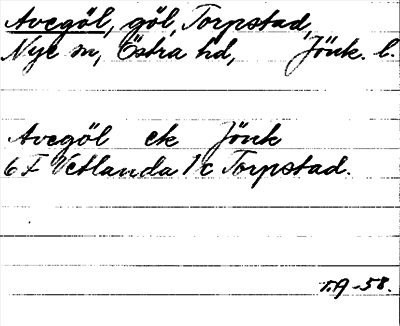 Avegöl, göl, Torpstad,
Nye sn, Östra hd, Jönk. l.
Avegöl ek Jönk
6 F Vetlanda 1 c Torpstad.
r.A -58.